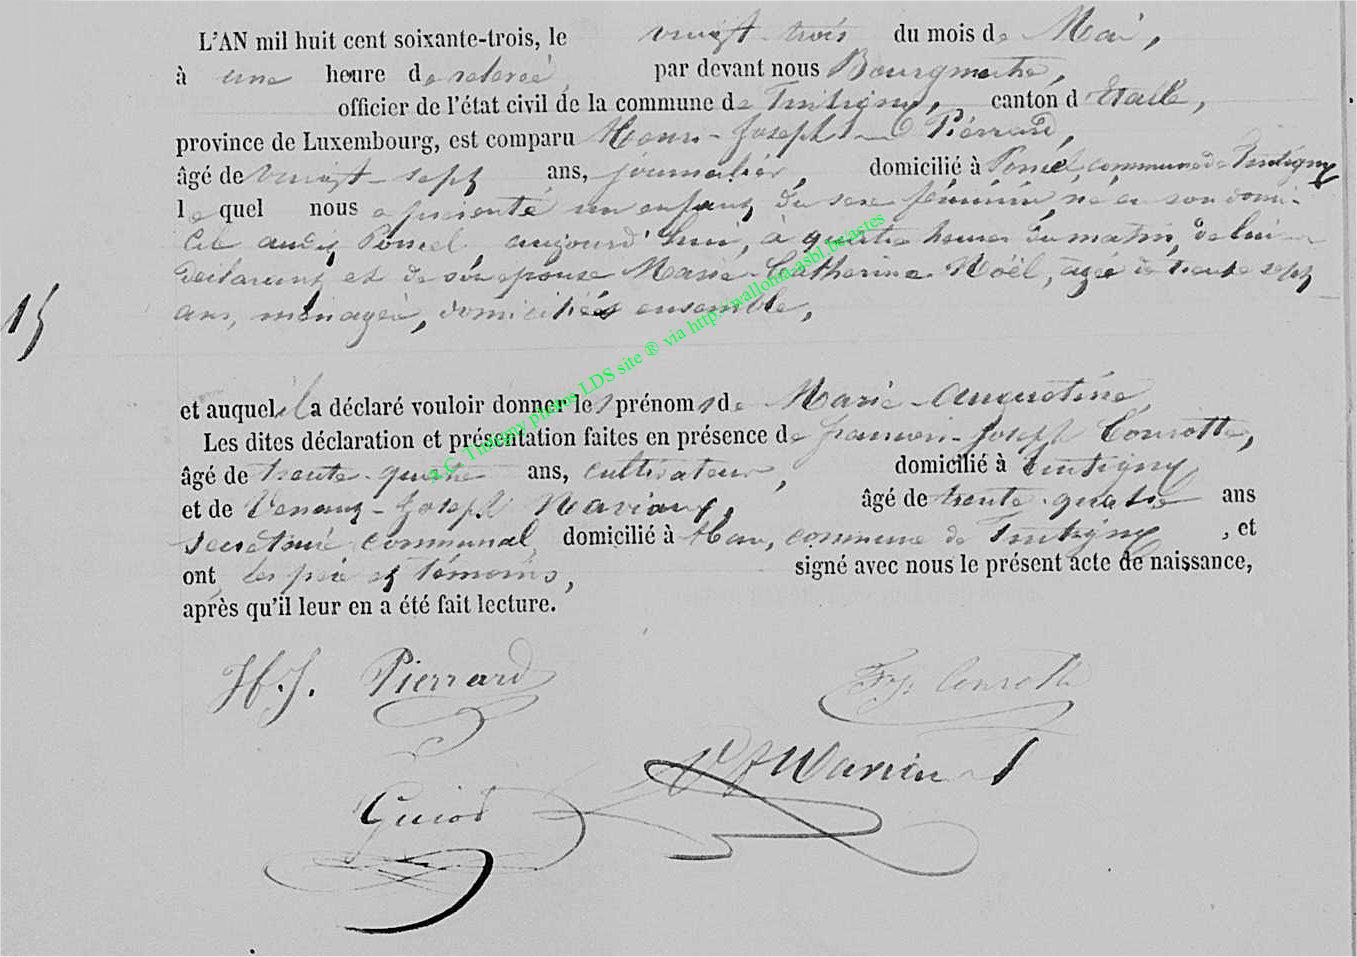 L'AN mil huit cent soixante-trois, le vingt-trois du mois de Mai,
à une heure de relevée, par devant nous Bourgmestre,
officier de l'état civil de la commune de Tintigny, canton d'Etalle,
province de Luxembourg, est comparu Henri-Joseph Piérrard,
âgé de vingt-sept ans, journalier, domicilié à Poncel, commune de Tintigny
le quel nous a présenté un enfant du sexe féminin, né en son domi-
cile audit Poncel aujourd'hui, à quatre heures du matin, de lui
déclarant et de son épouse Marie-Catherine Noël, âgée de trente sept
ans, ménagère, domiciliés ensemble,
15
et auquel il a déclaré vouloir donner les prénoms de Marie-Augustine
Les dites déclaration et présentation faites en présence de françois-Joseph Conrotte,
âgé de trente-quatre ans, cultivateur, domicilié à tintigny
et de Venant-Joseph Waviaux, âgé de trente-quatre ans
secrétaire communal, domicilié à Han, commune de Tintigny, et
ont, les père et témoins, signé avec nous le présent acte de naissance,
après qu'il leur en a été fait lecture.
H.J. Pierrard F.J. Conrotte
VJ
Guiot
a.C. Tintigny photos LDS site ® via http://wallonia-asbl.be/actes